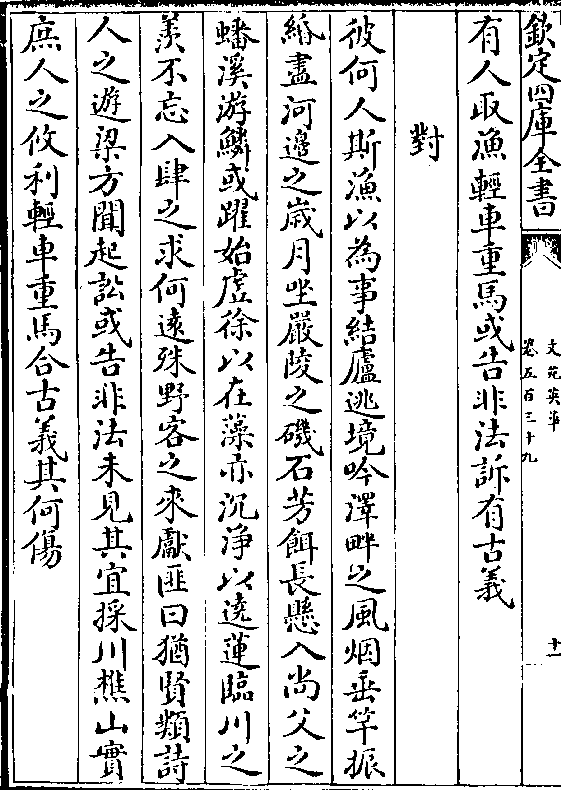 欽定四庫全書
文苑英華
卷五百三十九
十一
有人取漁輕車重馬或告非法訴有古義
對
彼何人斯漁以為事結廬逃境吟澤畔之風烟垂竿振
緡盡河邊之歲月坐嚴陵之磯石芳餌長懸入尚父之
蟠溪游鱗或躍始虚徐以在藻亦沉淨以遶蓮臨川之
羡不忘入肆之求何逺殊野客之來獻匪曰猶賢類詩
人之遊梁方聞起訟或告非法未見其宜採川樵山實
庶人之攸利輕車重馬合古義其何傷